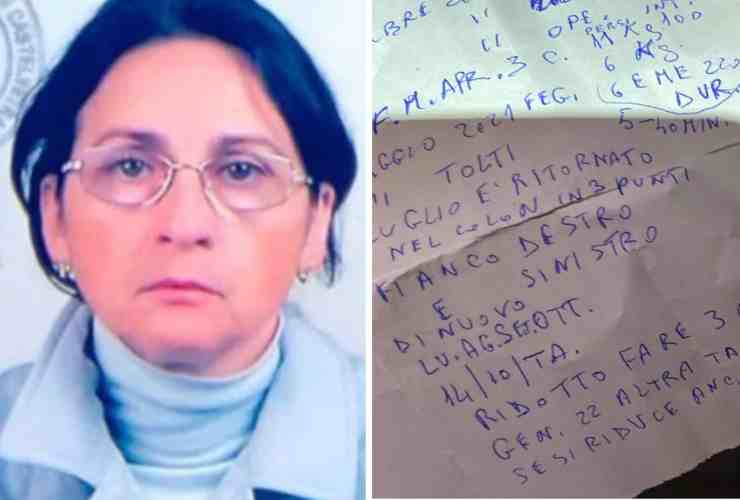 CASTELVETRA
BRE 2
" OPE INT.
" PERSI KS 100
F.M. APR. 3 C. 11 KS.
AGGIO 2021 FEG. (6 EME 220
5-40 MIN. DUR
" TOLTI
UGLIO E' RITORNATO
NEL COLON IN 3 PUNTI
FIANCO DESTRO
E SINISTRO
DI NUOVO
LU. AG. SET. OTT.
14/10/TA.
RIDOTTO FARE 3
GEN. 22 ALTRA TA
SE SI RIDUCE ANC